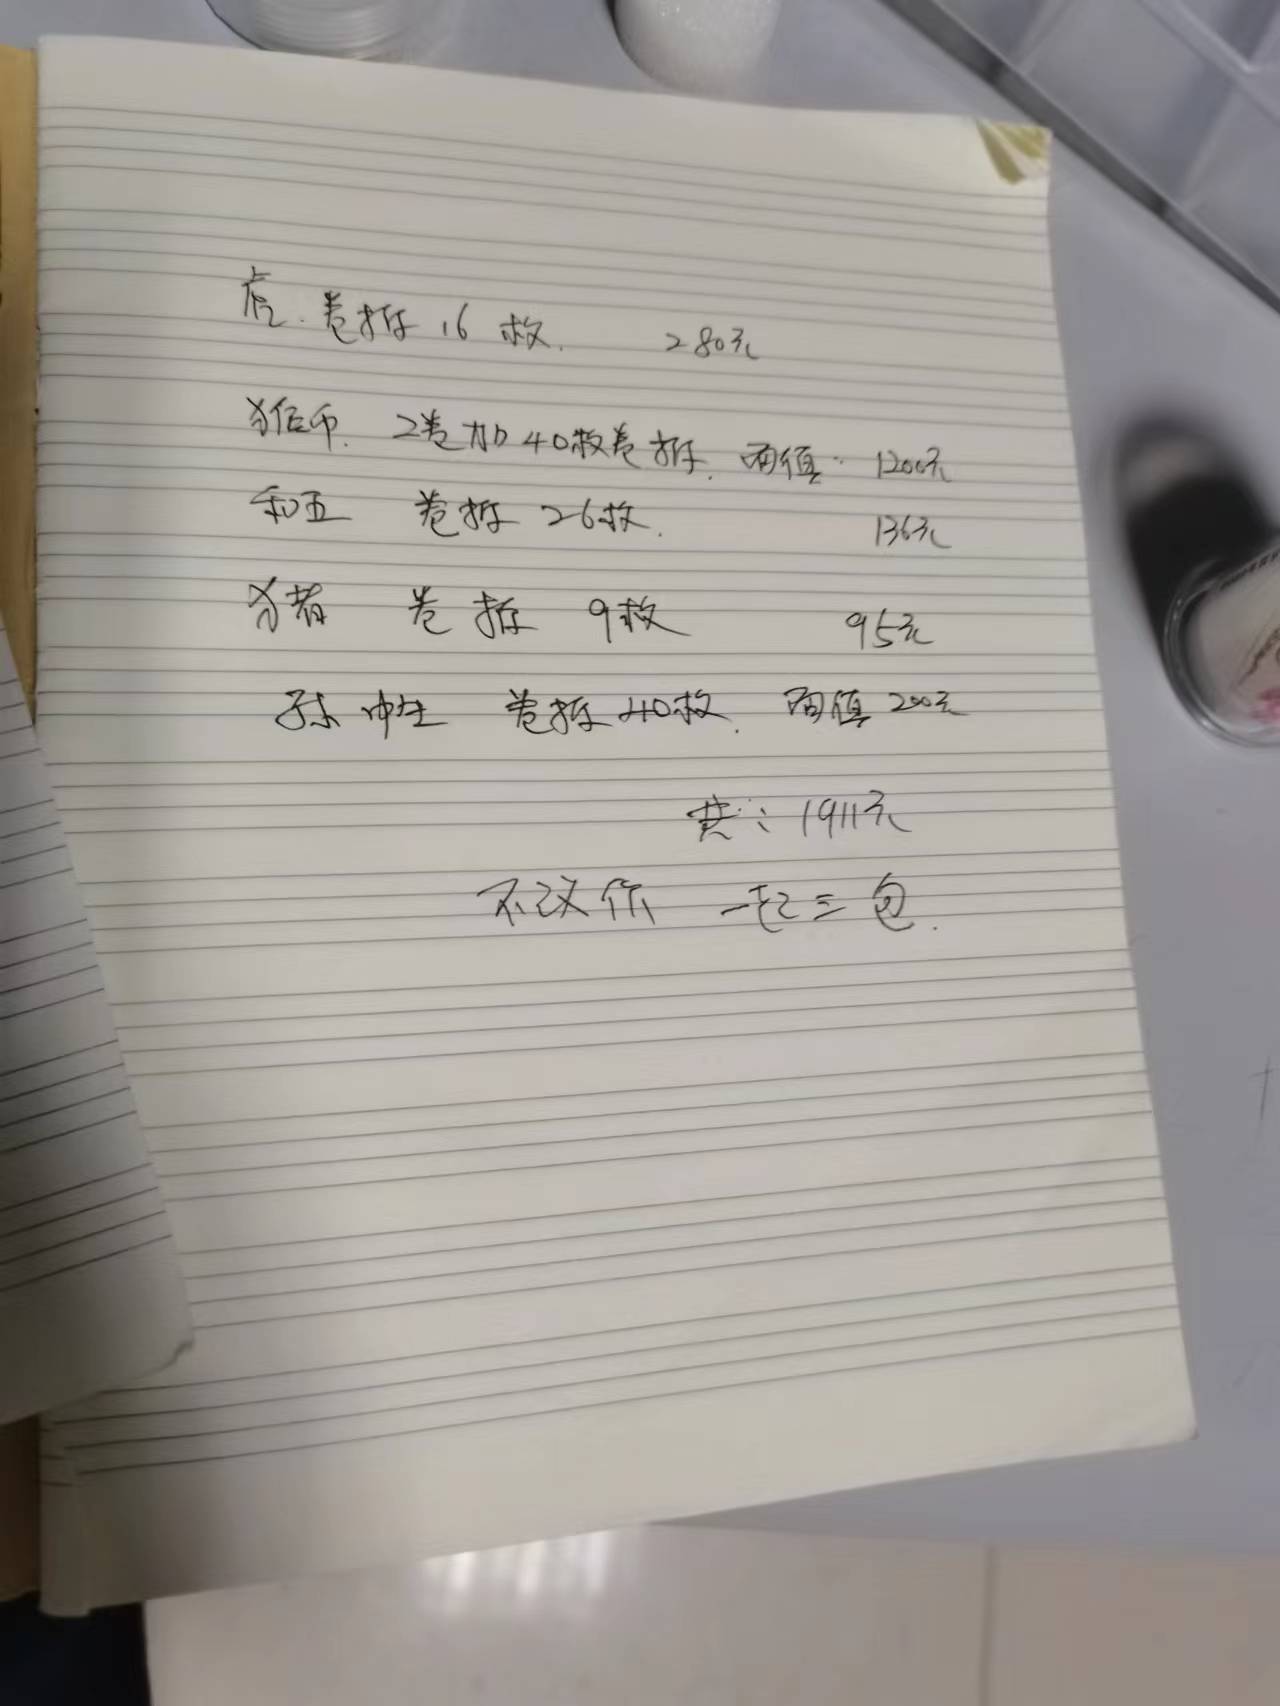 虎. 卷拆 16 枚. 280元
猴币. 2卷加40枚卷拆. 面值: 1200元
和五 卷拆 26枚. 136元
猪 卷拆 9枚 95元
孙中生 卷拆40枚. 面值200元
共: 1911元
不议价 一起三包.